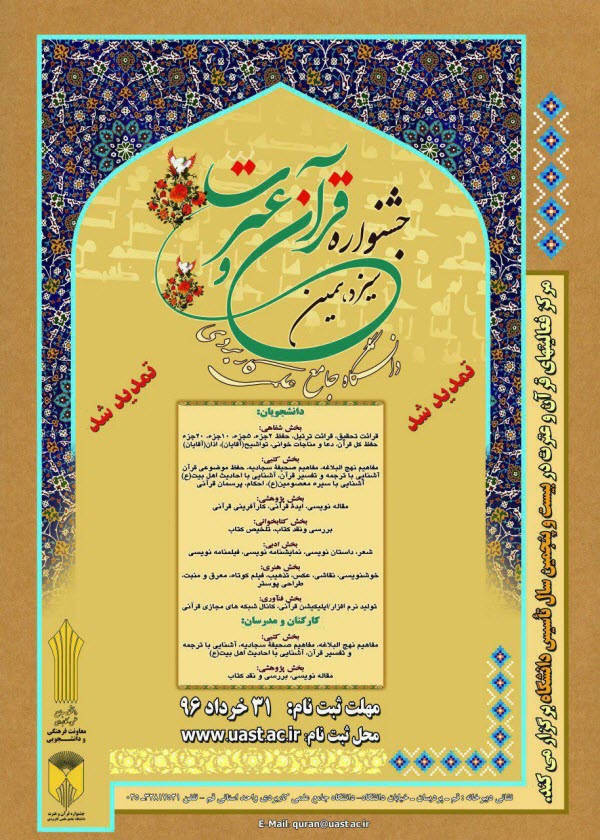 جشنواره
قرآن و عترت
سیزدهمین
دانشگاه جامع علمی کاربردی
تمدید شد
تمدید شد
دانشجویان:
بخش شفاهی:
قرائت تحقیق، قرائت ترتیل، حفظ ۳جزء، ۵جزء، ۱۰جزء، ۲۰جزء
حفظ کل قرآن، دعا و مناجات خوانی، تواشیح(آقایان)، اذان(آقایان)
بخش کتبی:
مفاهیم نهج البلاغه، مفاهیم صحیفه سجادیه، حفظ موضوعی قرآن
آشنایی با ترجمه و تفسیر قرآن، آشنایی با احادیث اهل بیت(ع)
آشنایی با سیره معصومین(ع)، احکام، پرسمان قرآنی
بخش پژوهشی:
مقاله نویسی، ایده قرآنی، کارآفرینی قرآنی
بخش کتابخوانی:
بررسی ونقد کتاب، تلخیص کتاب
بخش ادبی:
شعر، داستان نویسی، نمایشنامه نویسی، فیلمنامه نویسی
بخش هنری:
خوشنویسی، نقاشی، عکس، تذهیب، فیلم کوتاه، معرق و منبت،
طراحی پوستر
بخش فنآوری:
تولید نرم افزار/اپلیکیشن قرآنی، کانال شبکه های مجازی قرآنی
کارکنان و مدرسان:
بخش کتبی:
مفاهیم نهج البلاغه، مفاهیم صحیفه سجادیه، آشنایی با ترجمه
و تفسیر قرآن، آشنایی با احادیث اهل بیت(ع)
بخش پژوهشی:
مقاله نویسی، بررسی و نقد کتاب
مهلت ثبت نام: ۳۱ خرداد ۹۶
محل ثبت نام: www.uast.ac.ir
مرکز فعالیتهای قرآن و عترت در بیست و پنجمین سال تأسیس دانشگاه برگزار می کند.
معاونت فرهنگی
و دانشجویی
جشنواره قرآن و عترت
دانشگاه جامع علمی کاربردی
نشانی دبیرخانه : قم - پردیسان - خیابان دانشگاه- دانشگاه جامع علمی کاربردی واحد استانی قم - تلفن
E-Mail-quran@uast.ac.ir